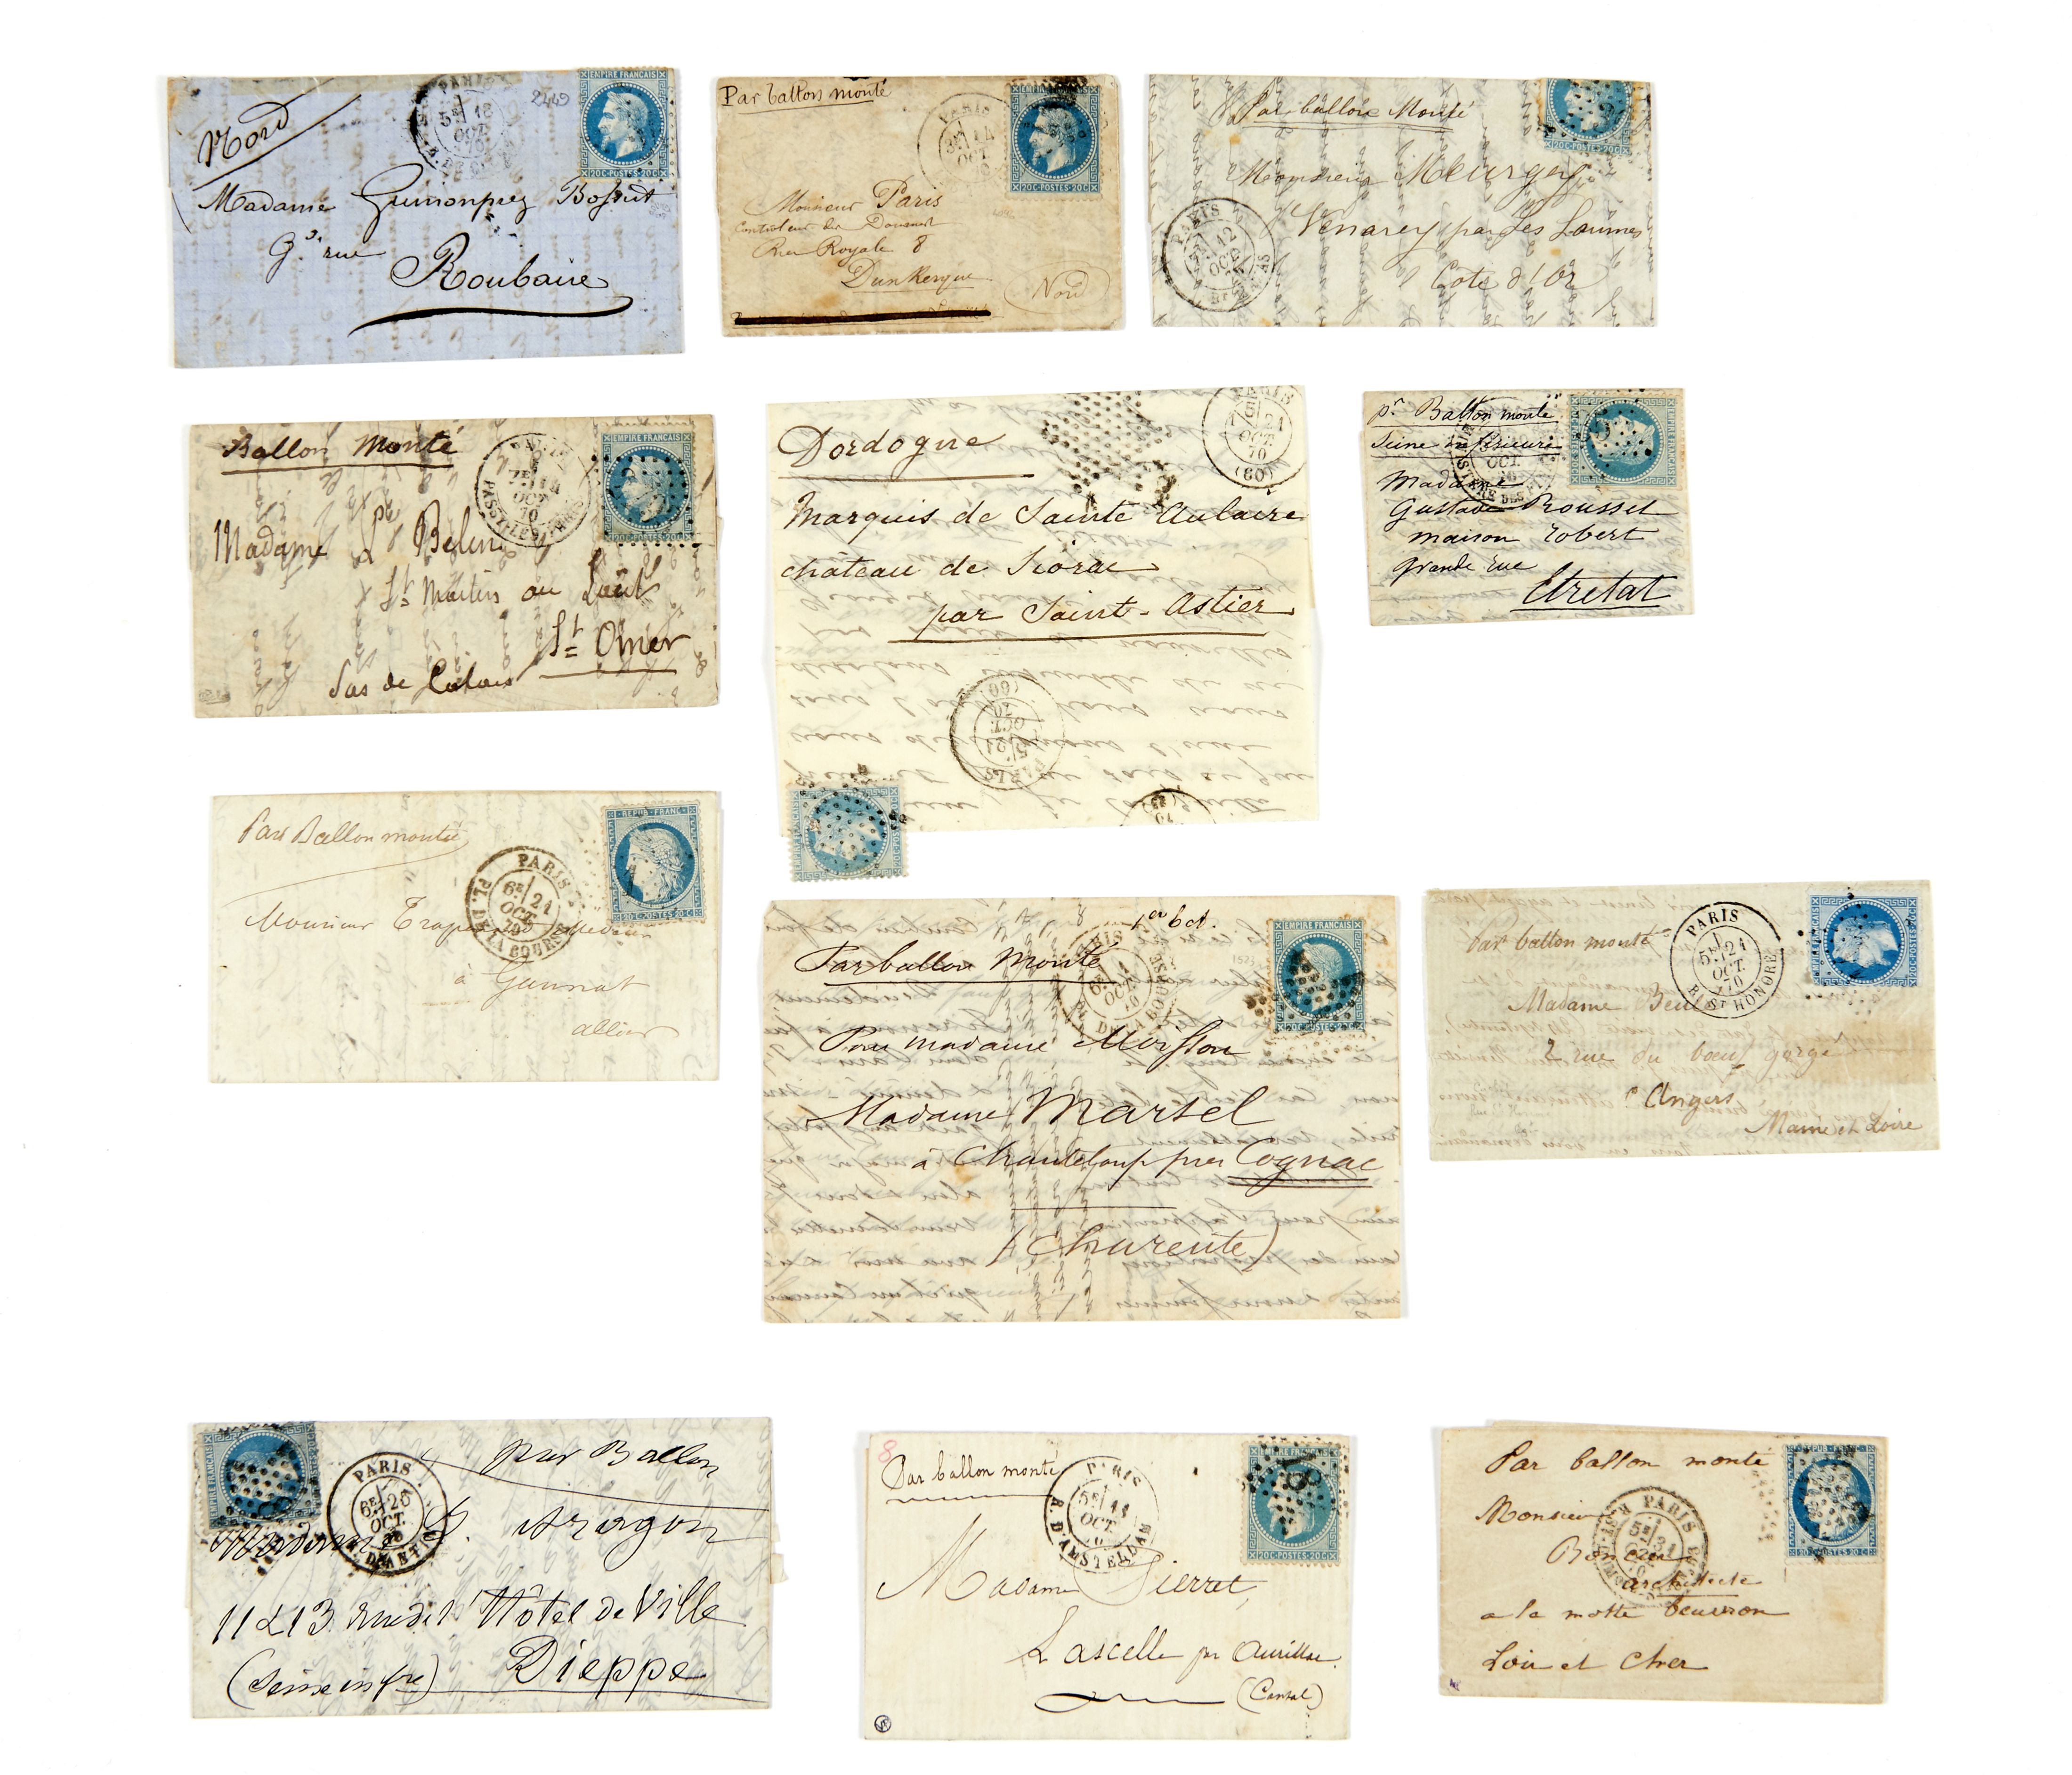 Nord
2449
5E 18
OCT.
70
EMPIRE FRANÇAIS
20C POSTES 20C
Madame Grimonprez Bossut
Gde rue
Roubaix
Par ballon monté
PARIS
OCT.
20C POSTES 20C
Monsieur Paris
Controleur des Douanes
Rue Royale 8
Dunkerque
Nord
Par ballon Monté
20C POSTES 20C
Monsieur
Venarey par Les Laumes
Cote d'Or
PARIS
12
OCT.
Ballon Monté
OCT
70
PASSY-LES-PARIS
EMPIRE FRANÇAIS
20C POSTES 20C
Madame Belin
St Martin au Laërt
St Omer
Pas de Calais
Dordogne
PARIS
21
OCT.
70
(60)
Marquis de Sainte Aulaire
château de Siorac
par Saint-Astier
PARIS
5E 21
OCT.
70
(60)
pr Ballon monté
Seine inférieure
OCT.
Madame
Gustave Rousset
maison Robert
grande rue
Etretat
Par Ballon monté
REPUB. FRANC.
20 C. POSTES 20 C.
PARIS
6E 21
OCT.
70
PL. DE LA BOURSE
Monsieur
à Gannat
allier
1er bd.
Par ballon Monté
PARIS
6E
OCT.
70
DE LA BOURSE
EMPIRE FRANÇAIS
20C POSTES 20C
Pour madame Moisson
Madame Martel
à Chanteloup près Cognac
(Charente)
par ballon monté
PARIS
5E 21
OCT.
70
R. ST HONORÉ
EMPIRE FRANÇAIS
20C POSTES 20C
Madame
2 rue du boeuf gorgé
Angers
Maine et Loire
par Ballon
PARIS
6E 26
OCT.
EMPIRE FRANÇAIS
Madame Aragon
11 & 13 rue de l'Hôtel de Ville
(Seine infre) Dieppe
8
Par ballon monté
PARIS
5E
OCT.
R. D'AMSTERDAM
EMPIRE FRANÇAIS
18
20C POSTES 20C
Madame Pierret,
Lascelle par Aurillac
(Cantal)
Par ballon monté
PARIS
5E 31
REPUB. FRANC.
Monsieur
architecte
a la motte beuvron
Loir et Cher